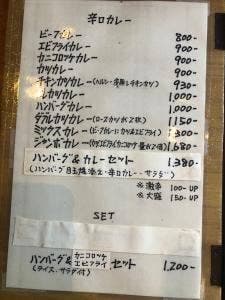 辛口カレー
ビーフカレー 800-
エビフライカレー 900-
カニコロッケカレー 900-
カツカレー 900-
チキンカツカレー(ヘルシー 手羽しチキンカツ) 930-
カレー 1,000-
ハンバーグカレー 1,000-
ダブルカツカレー(ロースカツが2枚) 1,150-
ミックスカレー(ビーフカレーにカツ&エビフライ) 1,300-
ジャンボカレー( 量が2倍) 1,680-
ハンバーグ&カレーセット 1,380-
(ハンバーグ 目玉焼 辛口カレー サラダ)
※激辛 100-UP
※大盛 150-UP
SET
ハンバーグ& カニコロッケ エビフライ セット 1,200-
(ライス、サラダ付)